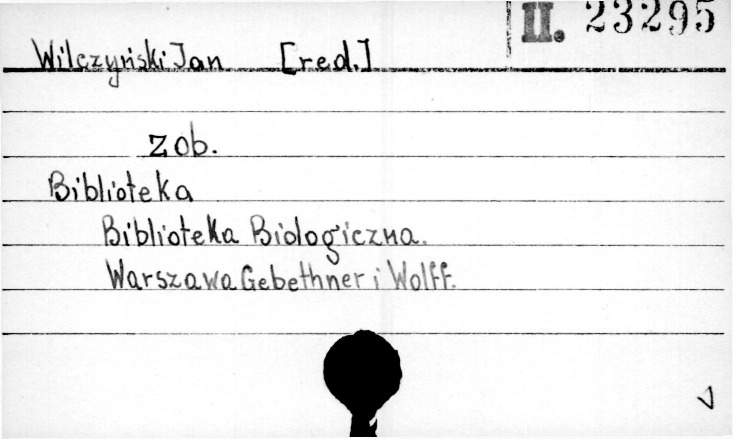 II. 23295
Wilczyński Jan [red.]
zob.
Biblioteka
Biblioteka Biologiczna.
Warszawa Gebethner i Wolff.
V